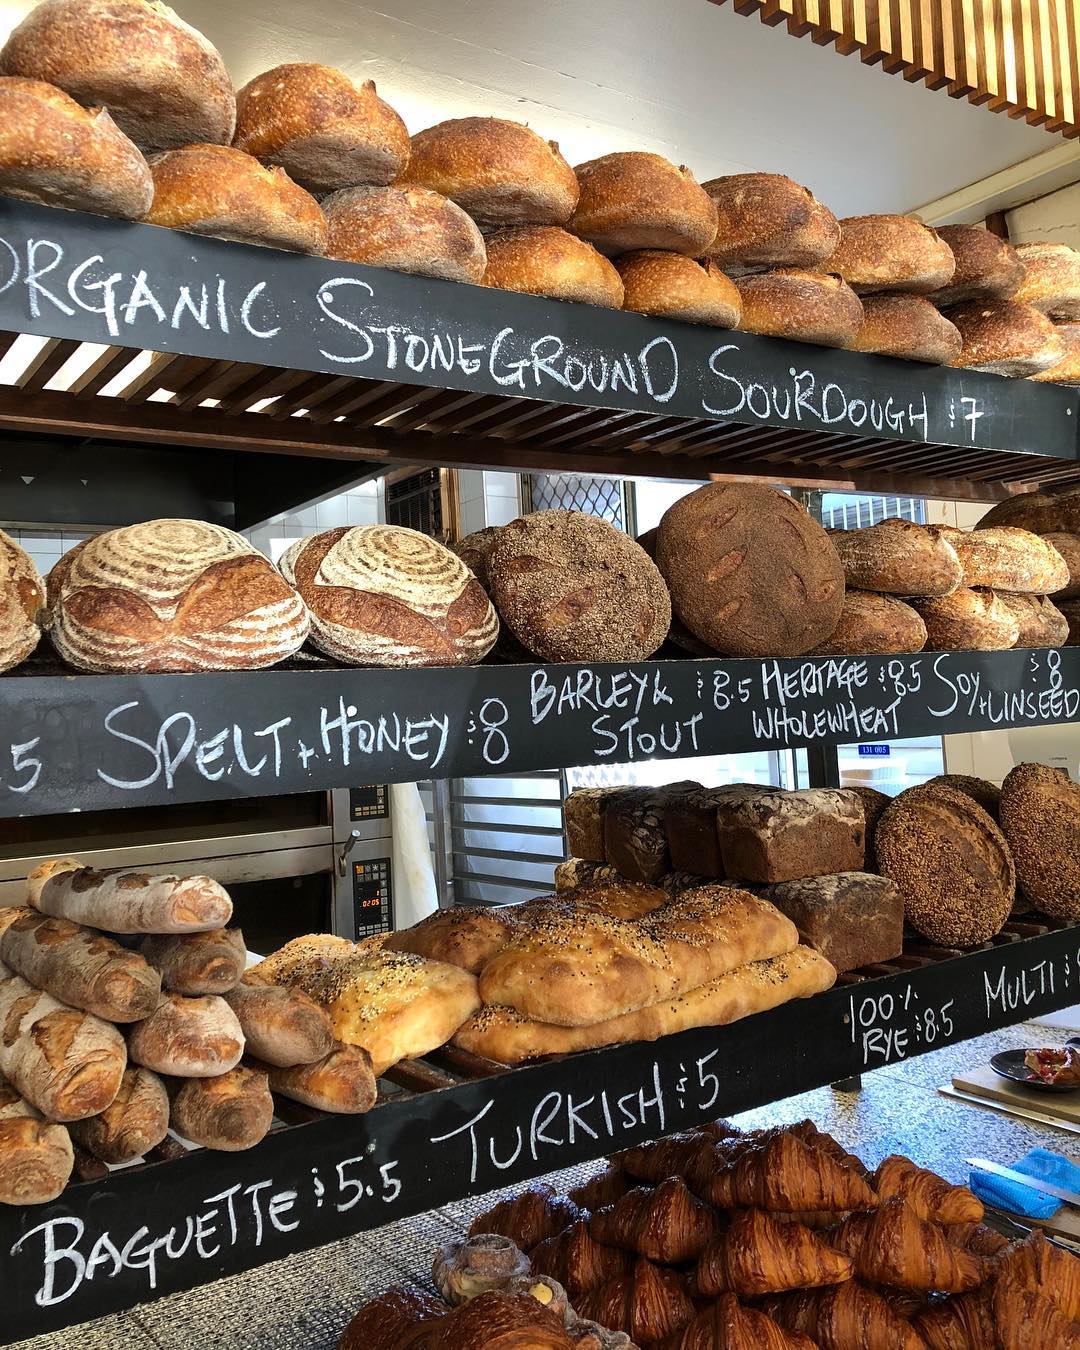 ORGANIC STONEGROUND SOURDOUGH $7
5 SPELT + HONEY $8
BARLEY &
STOUT $8.5
HERITAGE
WHOLEWHEAT $8.5
SOY
+LINSEED $8
100%
RYE $8.5
MULTI $
BAGUETTE $5.5 TURKISH $5
131 005
0205